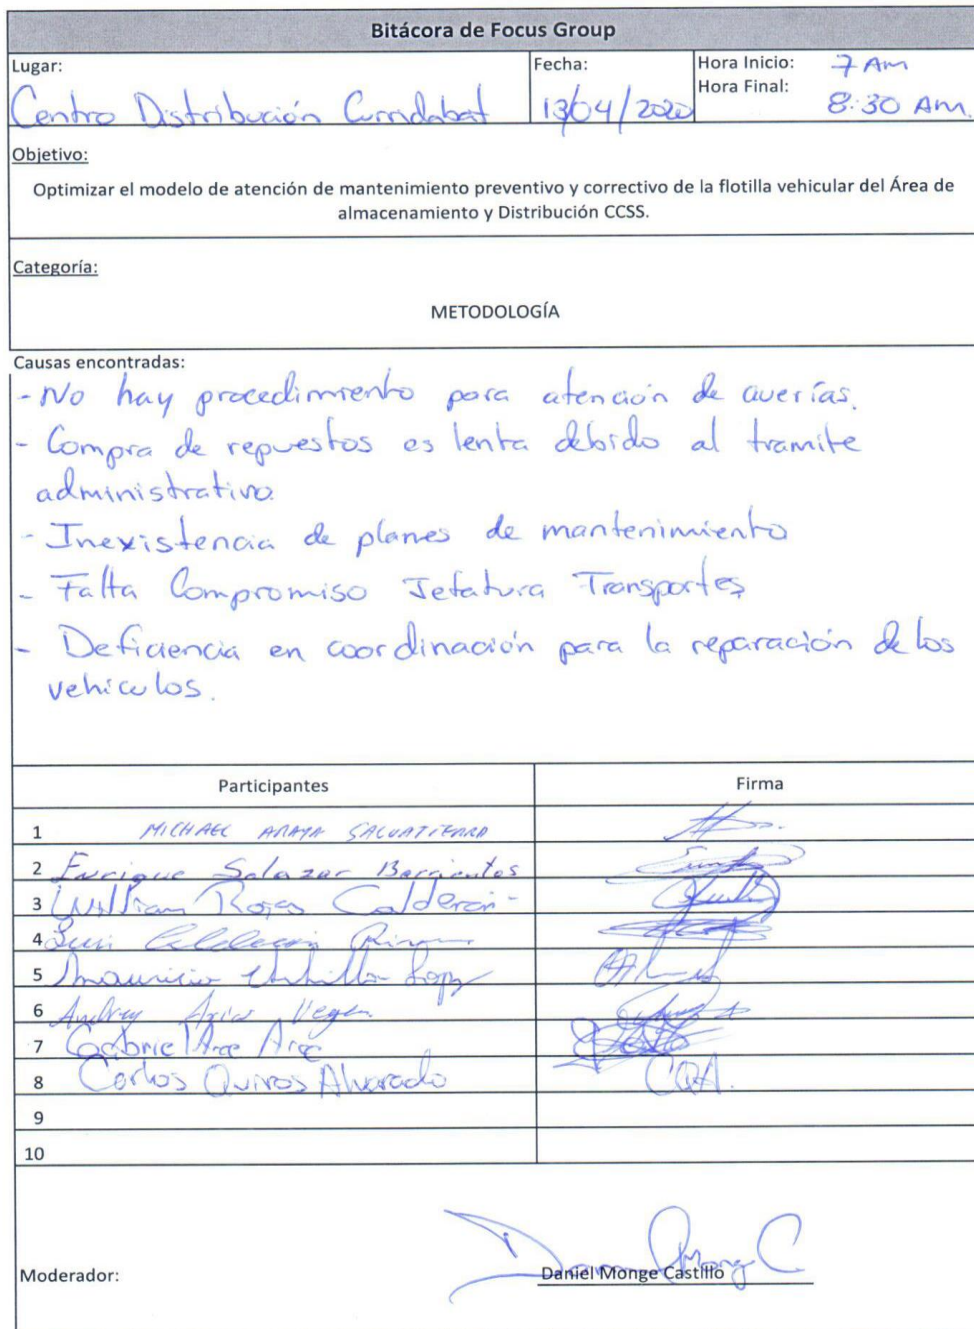 Bitácora de Focus Group
Lugar:
Centro Distribución Curridabat
Fecha:
13/04/2020
Hora Inicio: 7 AM
Hora Final: 8:30 AM.
Objetivo:
Optimizar el modelo de atención de mantenimiento preventivo y correctivo de la flotilla vehicular del Área de
almacenamiento y Distribución CCSS.
Categoría:
METODOLOGÍA
Causas encontradas:
- No hay procedimiento para atención de averías.
- Compra de repuestos es lenta debido al tramite
administrativo.
- Inexistencia de planes de mantenimiento
- Falta Compromiso Jefatura Transportes
- Deficiencia en coordinación para la reparación de los
vehiculos.
Participantes Firma
1 MICHAEL ARAYA SALVATIERRA
2 Enrique Salazar Barrientos
3 William Rojas Calderón
4
5 Mauricio
6 Andrey Arias Vega
7 Gabriel Arce Arce
8 Carlos Quiros Alvarado CQA.
9
10
Moderador: Daniel Monge Castillo